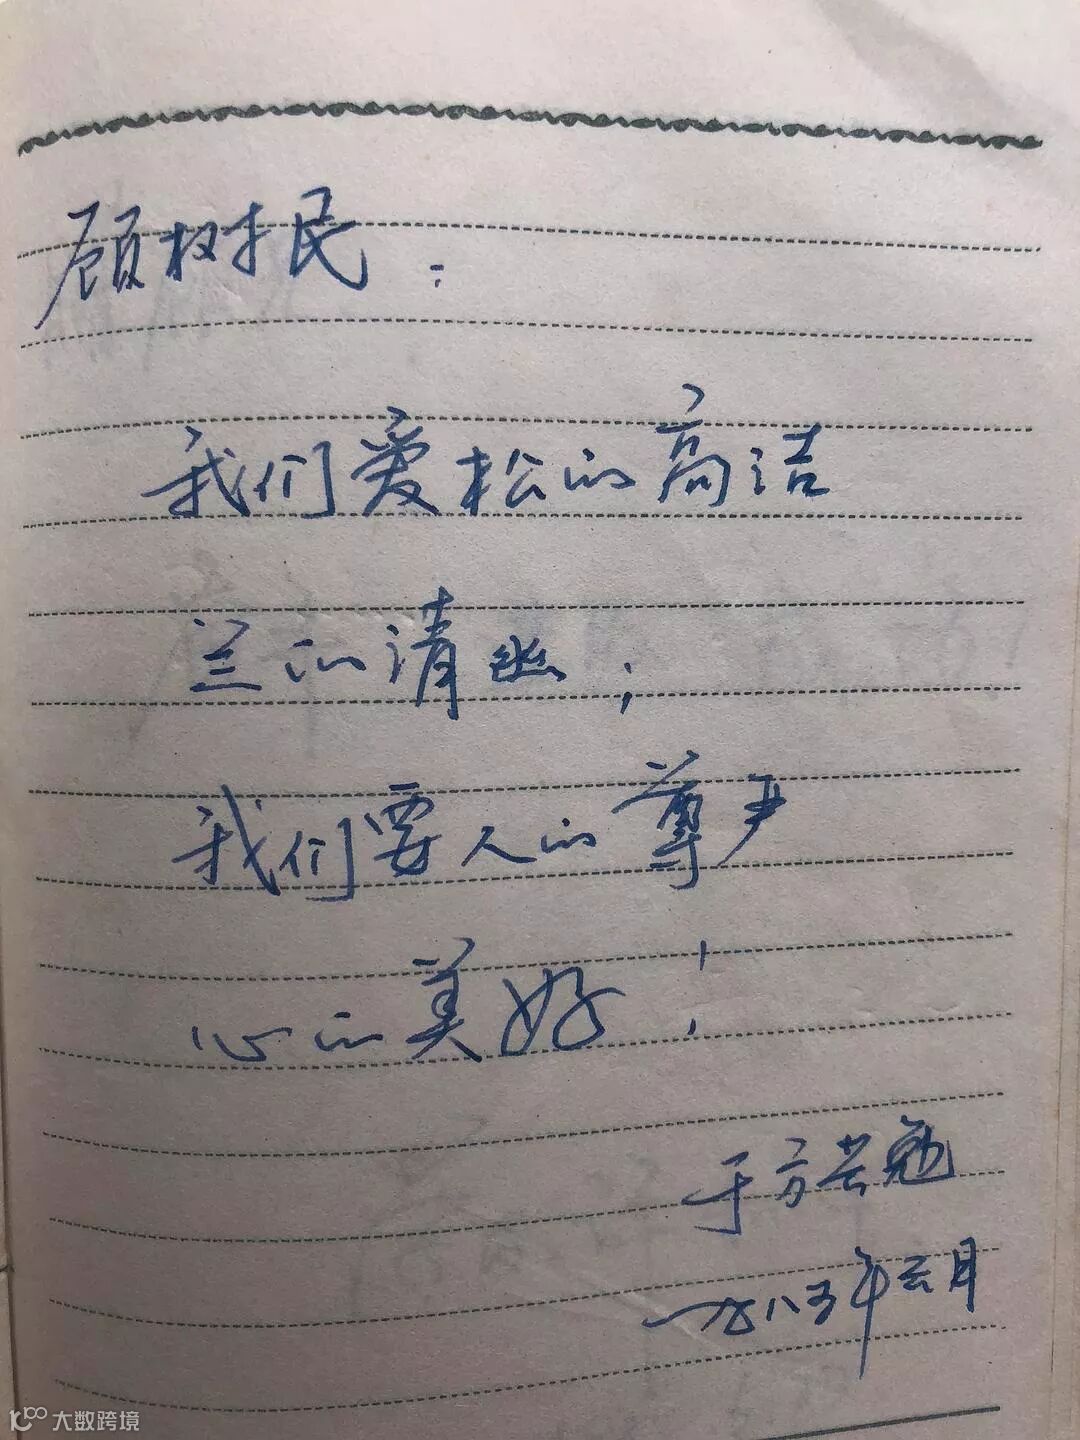 顾树民：
我们爱松的高洁
兰的清幽；
我们要人的尊严
心的美好！
于方共勉
一九八五年六月
大数跨境